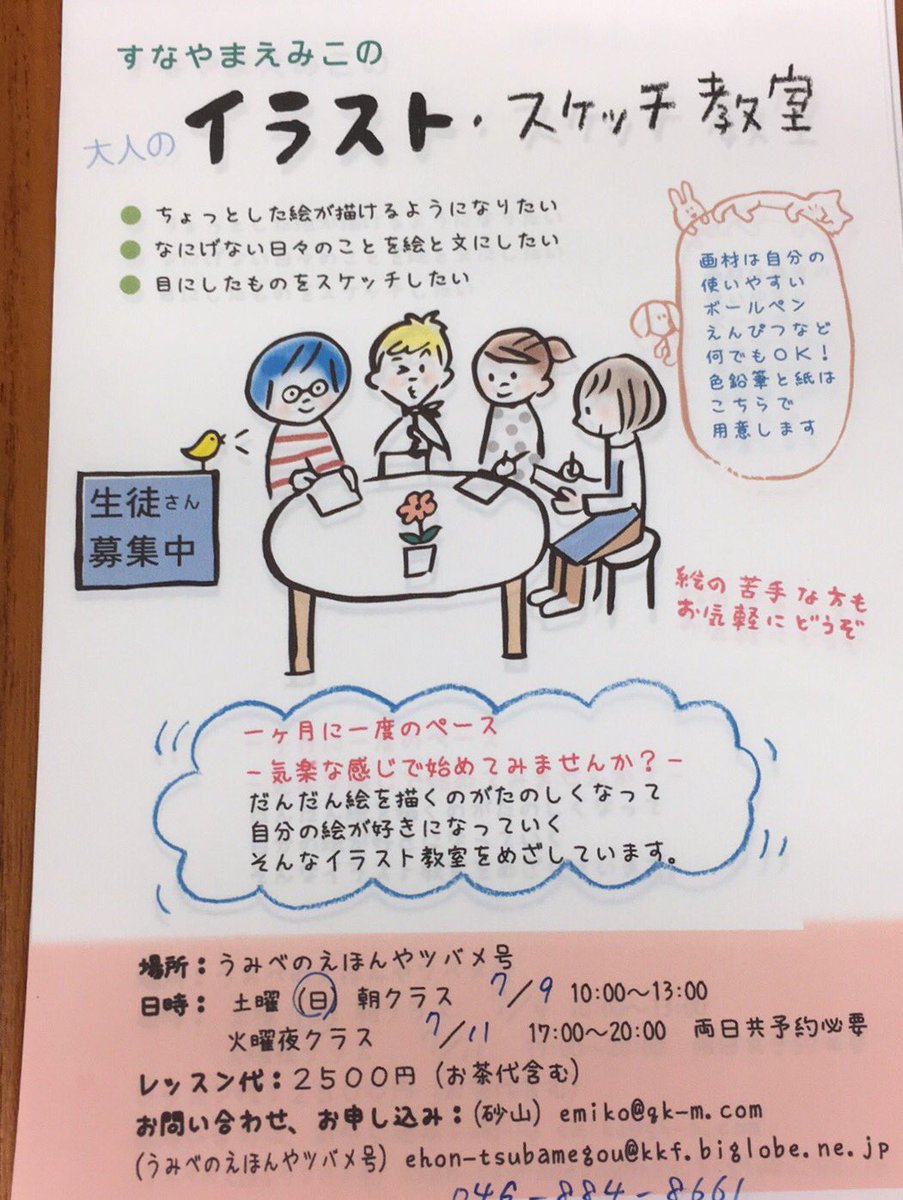 すなやまえみこの
大人の イラスト・スケッチ教室
● ちょっとした絵が描けるようになりたい
● なにげない日々のことを絵と文にしたい
● 目にしたものをスケッチしたい
画材は自分の
使いやすい
ボールペン
えんぴつなど
何でもOK!
色鉛筆と紙は
こちらで
用意します
生徒さん
募集中
絵の苦手な方も
お気軽にどうぞ
一ヶ月に一度のペース
-気楽な感じで始めてみませんか?-
だんだん絵を描くのがたのしくなって
自分の絵が好きになっていく
そんなイラスト教室をめざしています。
場所:うみべのえほんやツバメ号
日時: 土曜(日)朝クラス 7/9 10:00〜13:00
火曜夜クラス 7/11 17:00〜20:00 両日共予約必要
レッスン代:2500円(お茶代含む)
お問い合わせ、お申し込み:(砂山) emiko@gk-m.com
(うみべのえほんやツバメ号) ehon-tsubamegou@kkf.biglobe.ne.jp
046-884-8661